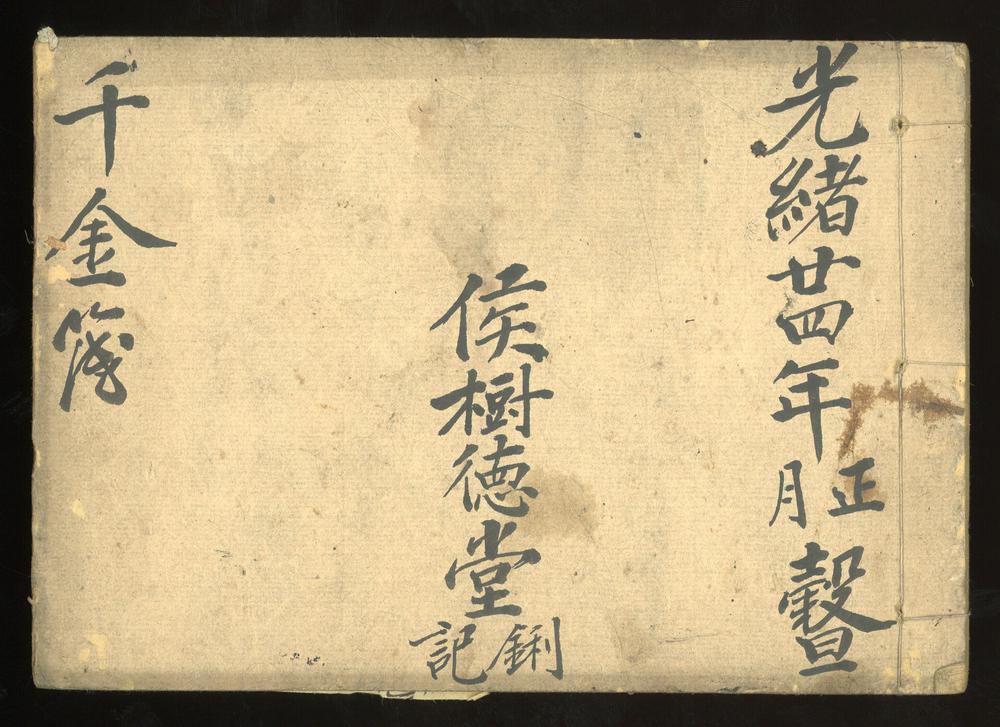 光緒廿四年正月穀旦
侯樹德堂
記
千金簿